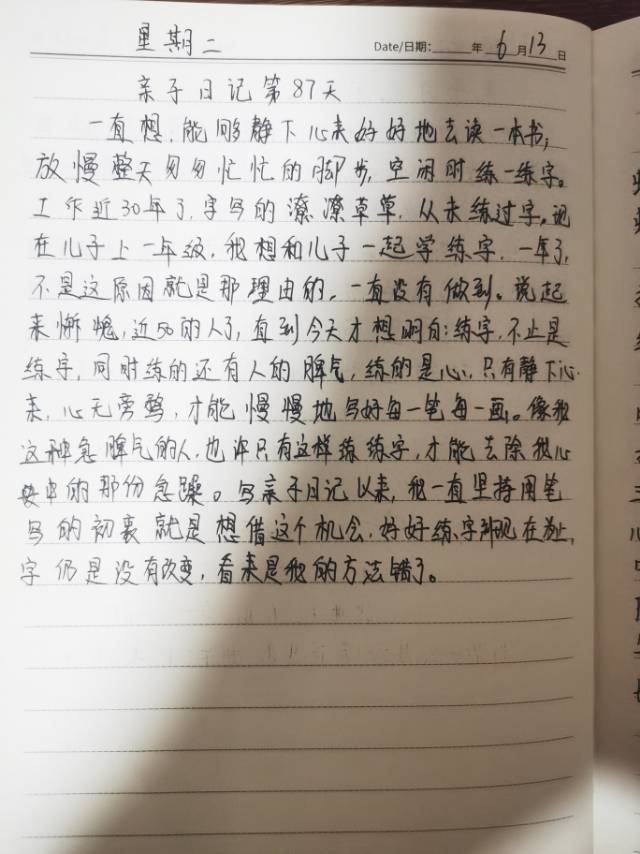 星期二 Date/日期: 年 6 月 13 日
亲子日记第87天
一直想,能够静下心来好好地去读一本书,
放慢整天匆匆忙忙的脚步,空闲时练一练字。
工作近30年了,字写的潦潦草草,从未练过字。记
在儿子上一年级,我想和儿子一起学练字,一年了,
不是这原因就是那理由的,一直没有做到。说起
来惭愧,近50的人了,直到今天才想明白:练字,不止是
练字,同时练的还有人的脾气,练的是心,只有静下心
来,心无旁骛,才能慢慢地写好每一笔每一画。像我
这种急脾气的人,也许只有这样练练字,才能去除我心
中的那份急躁。写亲子日记以来,我一直坚持用笔
写的初衷就是想借这个机会,好好练字,到现在为止,
字仍是没有改变,看来是我的方法错了。